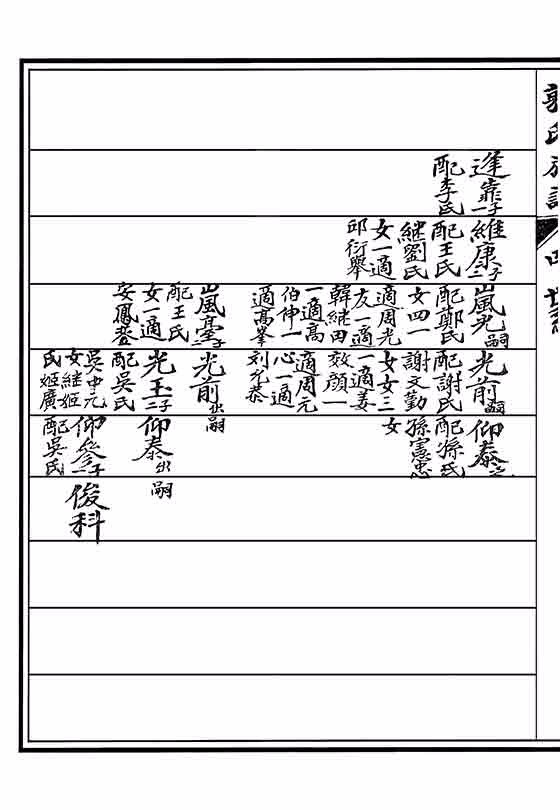 郭氏族譜
四 世系
逢靠一子
配李氏
維康二子
配王氏
継劉氏
女一適
邱衍舉
嵐光嗣一
配鄭氏
女四一
適周光
友一適
韓継田
一適高
伯伸一
適高峯
嵐臺二子
配王氏
女一適
安鳳登
光前嗣一
配謝氏
謝文勤
女女三
一適姜
效顔一
適周元
心一適
刘允恭
光前出嗣
光玉二子
配吳氏
吳中元
女継姬
氏姬廣
仰泰之
配孫氏
孫憲忠
女
仰泰出嗣
仰叅一子
配吳氏
俊科